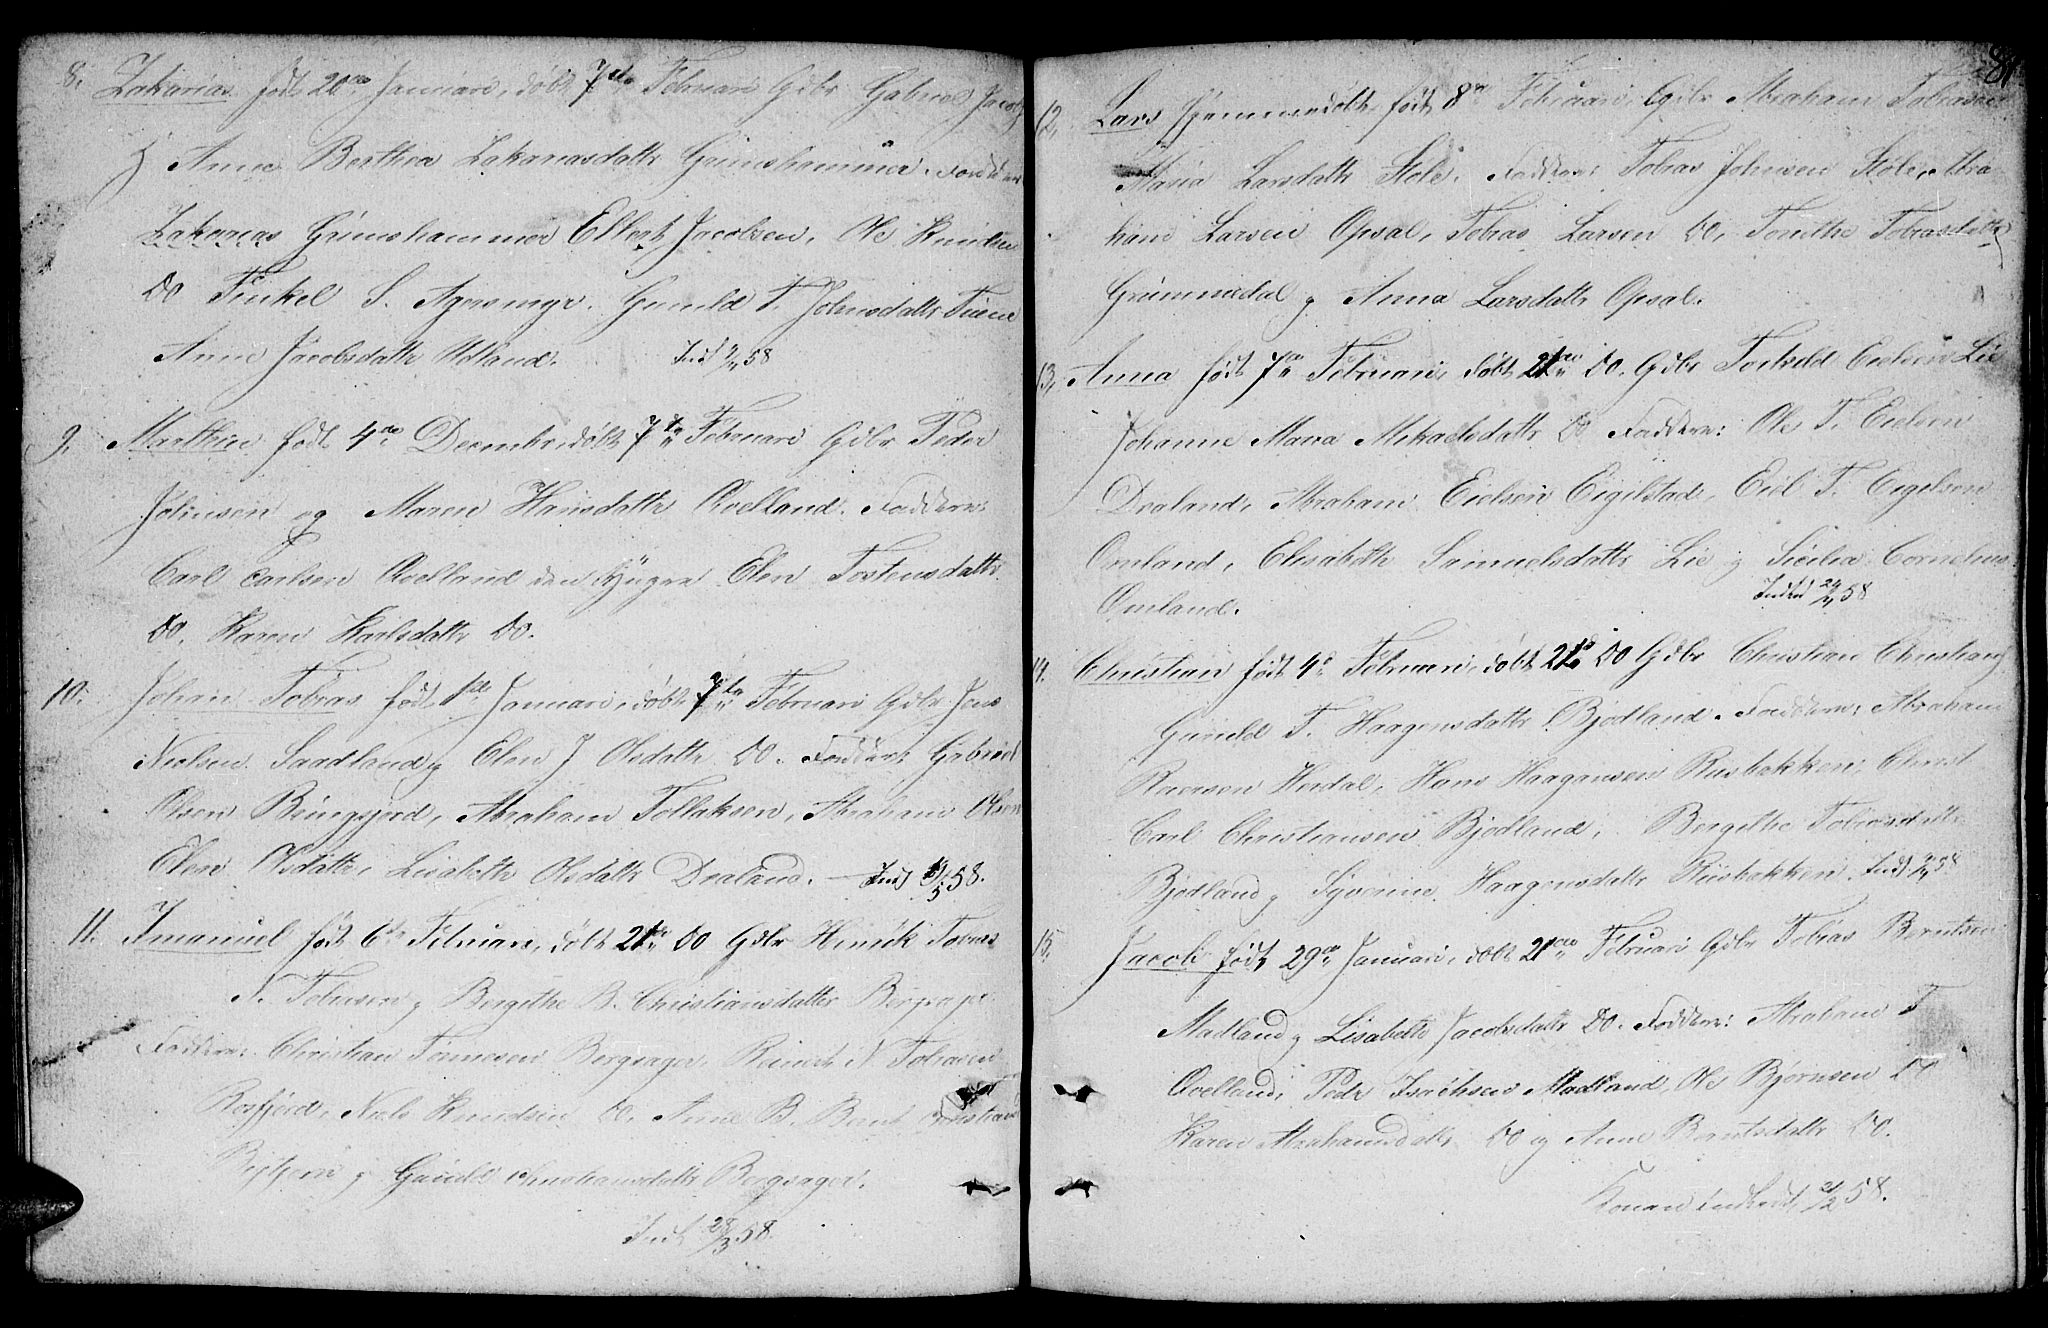 8. Zakarias født 20de Januari, døbt 7de Februari Gdbr Gabriel Jacobs
og Anne Berthea Zakariasdattr Grimshammer. Faddere
Zakarias Grimshammer Ellert Jacobsen, Ole Knudsen
Do Tinkel S. Agersmyr. Gunild T. Johnsdattr
Anne Jacobsdattr Udland. Ind 58
9. Marthin født 4de Decembr, døbt 7de Februari Gdbr Peder
Johnsen og Maren Hansdattr Qvelland. Faddere:
Carl Carlsen Qvelland den Yngre Elen Tostensdattr
Do. Karen Karlsdattr Do.
10. Johan Tobias født 1ste Januari, døbt 7de Februari Gdbr Jens
Nielsen Saadland og Elen J Olsdattr Do. Faddere Gabriel
Olsen Ringsjord, Abraham Tollaksen, Abraham Olsen
Elen Olsdattr, Lisabeth Olsdattr Draland. — Ind 58.
11. Imanuel født 6te Februari, døbt 21de Do Gdbr Henrik
T. Tobiasen og Bergithe B. Christiansdatter Bergsager
Faddere: Christian Tønnesen Bergsager, Reinert N Tobiasen
Rosfjord, Niels Knudsen Do. Anne B. Bernt
og Gunild Christiansdattr Bergsager.
Ind 28/3 58.
81
12. Lars hjemmedøbt født 8de Februari, Gdbr Abraham Tobiasen
Maria Larsdattr Støle. Faddere: Tobias Johnsen Støle, Abra
ham Larsen Opsal, Tobias Larsen Do, Tonethe Tobiasdattr
Grummedal og Anna Larsdattr Opsal.
13. Anna født 7de Februari, døbt 21de Do. Gdbr Torkeld Eielsen Lie
Johanne Maria Mikaelsdattr Do Faddere: Ole T. Eielsen
Draland, Abraham Eielsen Eigilstad, Eiel T. Eigelsen
Omland, Elisabeth Samuelsdattr Lie og Sicilia Cornelius
Omland. Indled 24/4 58
14. Christian født 4de Februari, døbt 21de Do Gdbr Christian Christians
Gunild T. Haagensdattr Bjodland. Faddere: Abraham
Reiersen Herdal, Hans Haagensen Rusbakken, Christ
Carl Christiansen Bjodland, Bergithe Tobiasdattr
Bjodland og Syverine Haagensdattr Rusbakken. Ind 58
15. Jacob født 29de Januari, døbt 21de Februari Gdbr Tobias Berntsen
Madland og Lisabeth Jacobsdattr Do. Faddere: Abraham T
Qvelland, Pedr Isachsen Madland, Ole Bjørnsen Do
Karen Abrahamsdattr Do og Anne Berntsdattr Do.
Konen indledt 21/2 58.